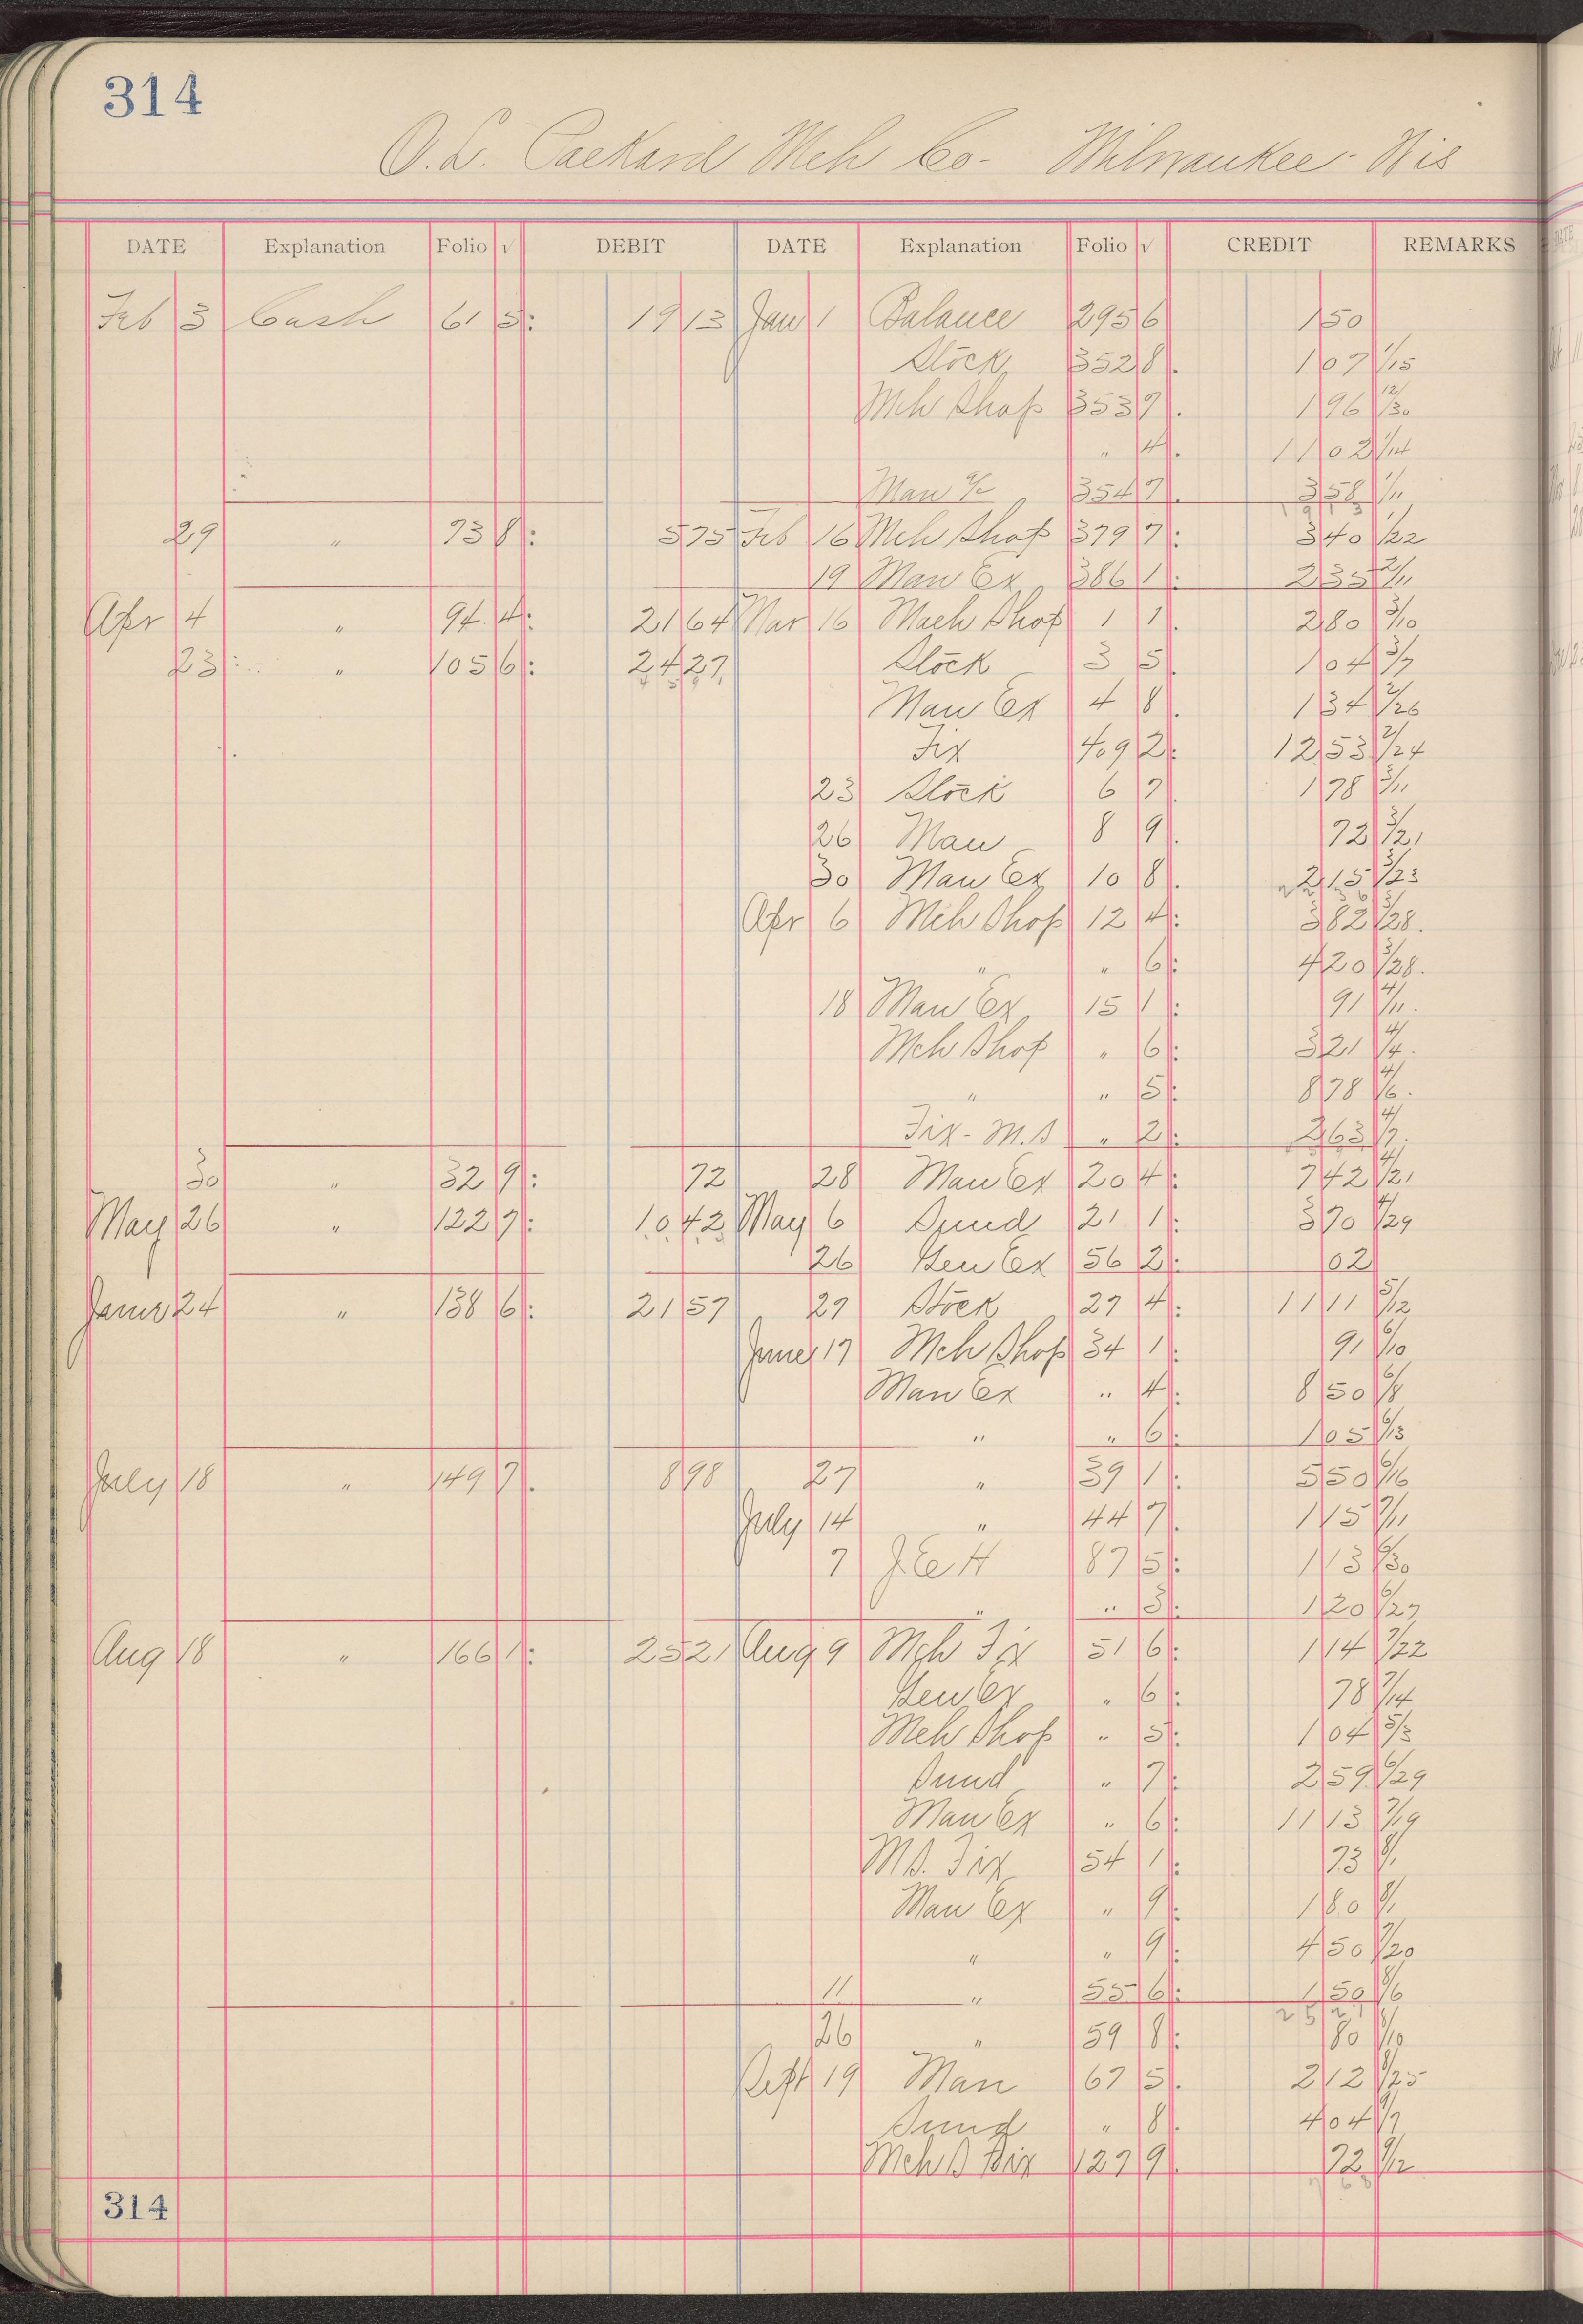 314
O. L. Packard Mch Co- Milwaukee- Wis
DATE Explanation Folio √ DEBIT DATE Explanation Folio √ CREDIT REMARKS
Feb 3 Cash 61 5: 19 13 Jan 1 Balance 295 6 1 50
Stock 352 8. 1 07 1/15
Mch Shop 353 7. 1 96 12/30
" 4. 11 02 1/14
Man Ex 354 7. 3 58 1/11
1913
29 " 73 8: 5 75 Feb 16 Mch Shop 379 7: 3 40 1/22
19 Man Ex 386 1: 2 35 2/11
Apr 4 " 94 4: 21 64 Mar 16 Mach Shop 1 1. 2 80 3/10
23 " 105 6: 24 27 Stock 3 5. 1 04 3/7
Man Ex 4 8. 1 34 2/26
Fix 409 2: 12 53 2/24
23 Stock 6 7. 1 78 3/11
26 Man 8 9. 72 3/21
30 Man Ex 10 8. 2 15 3/23
Apr 6 Mch Shop 12 4: 3 82 3/28.
" " 6: 4 20 3/28.
18 Man Ex 15 1: 91 4/11.
Mch Shop " 6: 3 21 4/4.
" " 5: 8 78 4/6.
Fix- M.S " 2: 2 63 4/7.
30 " 32 9: 72 28 Man Ex 20 4: 7 42 4/21
May 26 " 122 7: 10 42 May 6 Sund 21 1: 3 70 4/29
26 Gen Ex 56 2: 02
June 24 " 138 6: 21 57 27 Stock 27 4: 11 11 5/12
June 17 Mch Shop 34 1: 91 6/10
Man Ex " 4: 8 50 6/8
" " 6: 1 05 6/13
July 18 " 149 7. 8 98 27 " 39 1: 5 50 6/16
July 14 " 44 7. 1 15 7/11
7 J. E H 87 5: 1 13 6/30
" " 3: 1 20 6/27
Aug 18 " 166 1: 25 21 Aug 9 Mch Fix 51 6: 1 14 7/22
Gen Ex " 6: 78 7/14
Mch Shop " 5: 1 04 5/3
Sund " 7: 2 59 6/29
Man Ex " 6: 11 13 7/19
M S. Fix 54 1: 73 8/1
Man Ex " 9: 1 80 8/1
" " 9: 4 50 7/20
11 " 55 6: 1 50 8/6
2521
26 " 59 8: 80 8/10
Sept 19 Man 67 5. 2 12 8/25
Sund " 8. 4 04 9/7
Mch S Fix 127 9. 72 9/12
314